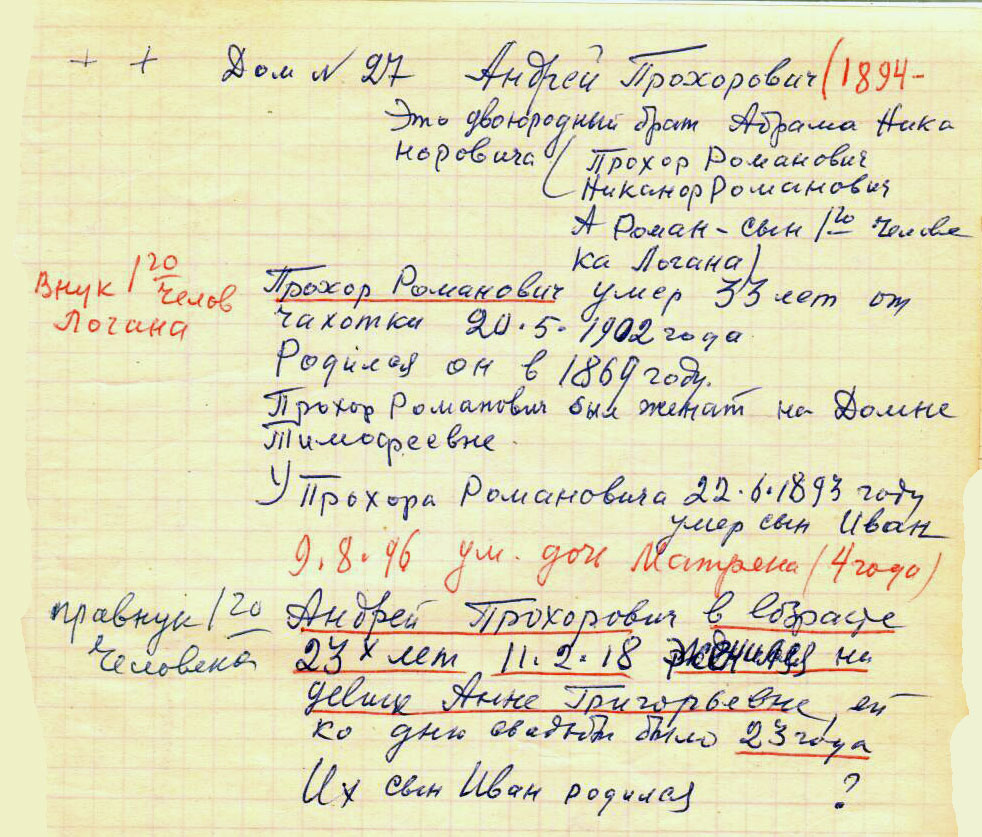 + + Дом N 27 Андрей Прохорович (1894-
Это двоюродный брат Абрама Ника
норовича (Прохор Романович
Никанор Романович
А Роман - сын 1го челове
ка Логана)
Внук 1го челов
Логана
Прохор Романович умер 33 лет от
чахотки 20.5.1902 года.
Родился он в 1869 году.
Прохор Романович был женат на Домне
Тимофеевне.
У Прохора Романовича 22.6.1893 году
умер сын Иван
9.8.96 ум. дочь Матрена (4 года)
правнук 1го
человека
Андрей Прохорович в возрасте
23х лет 11.2.18 женился на
девице Анне Григорьевне, ей
ко дню свадьбы было 23 года
Их сын Иван родился ?